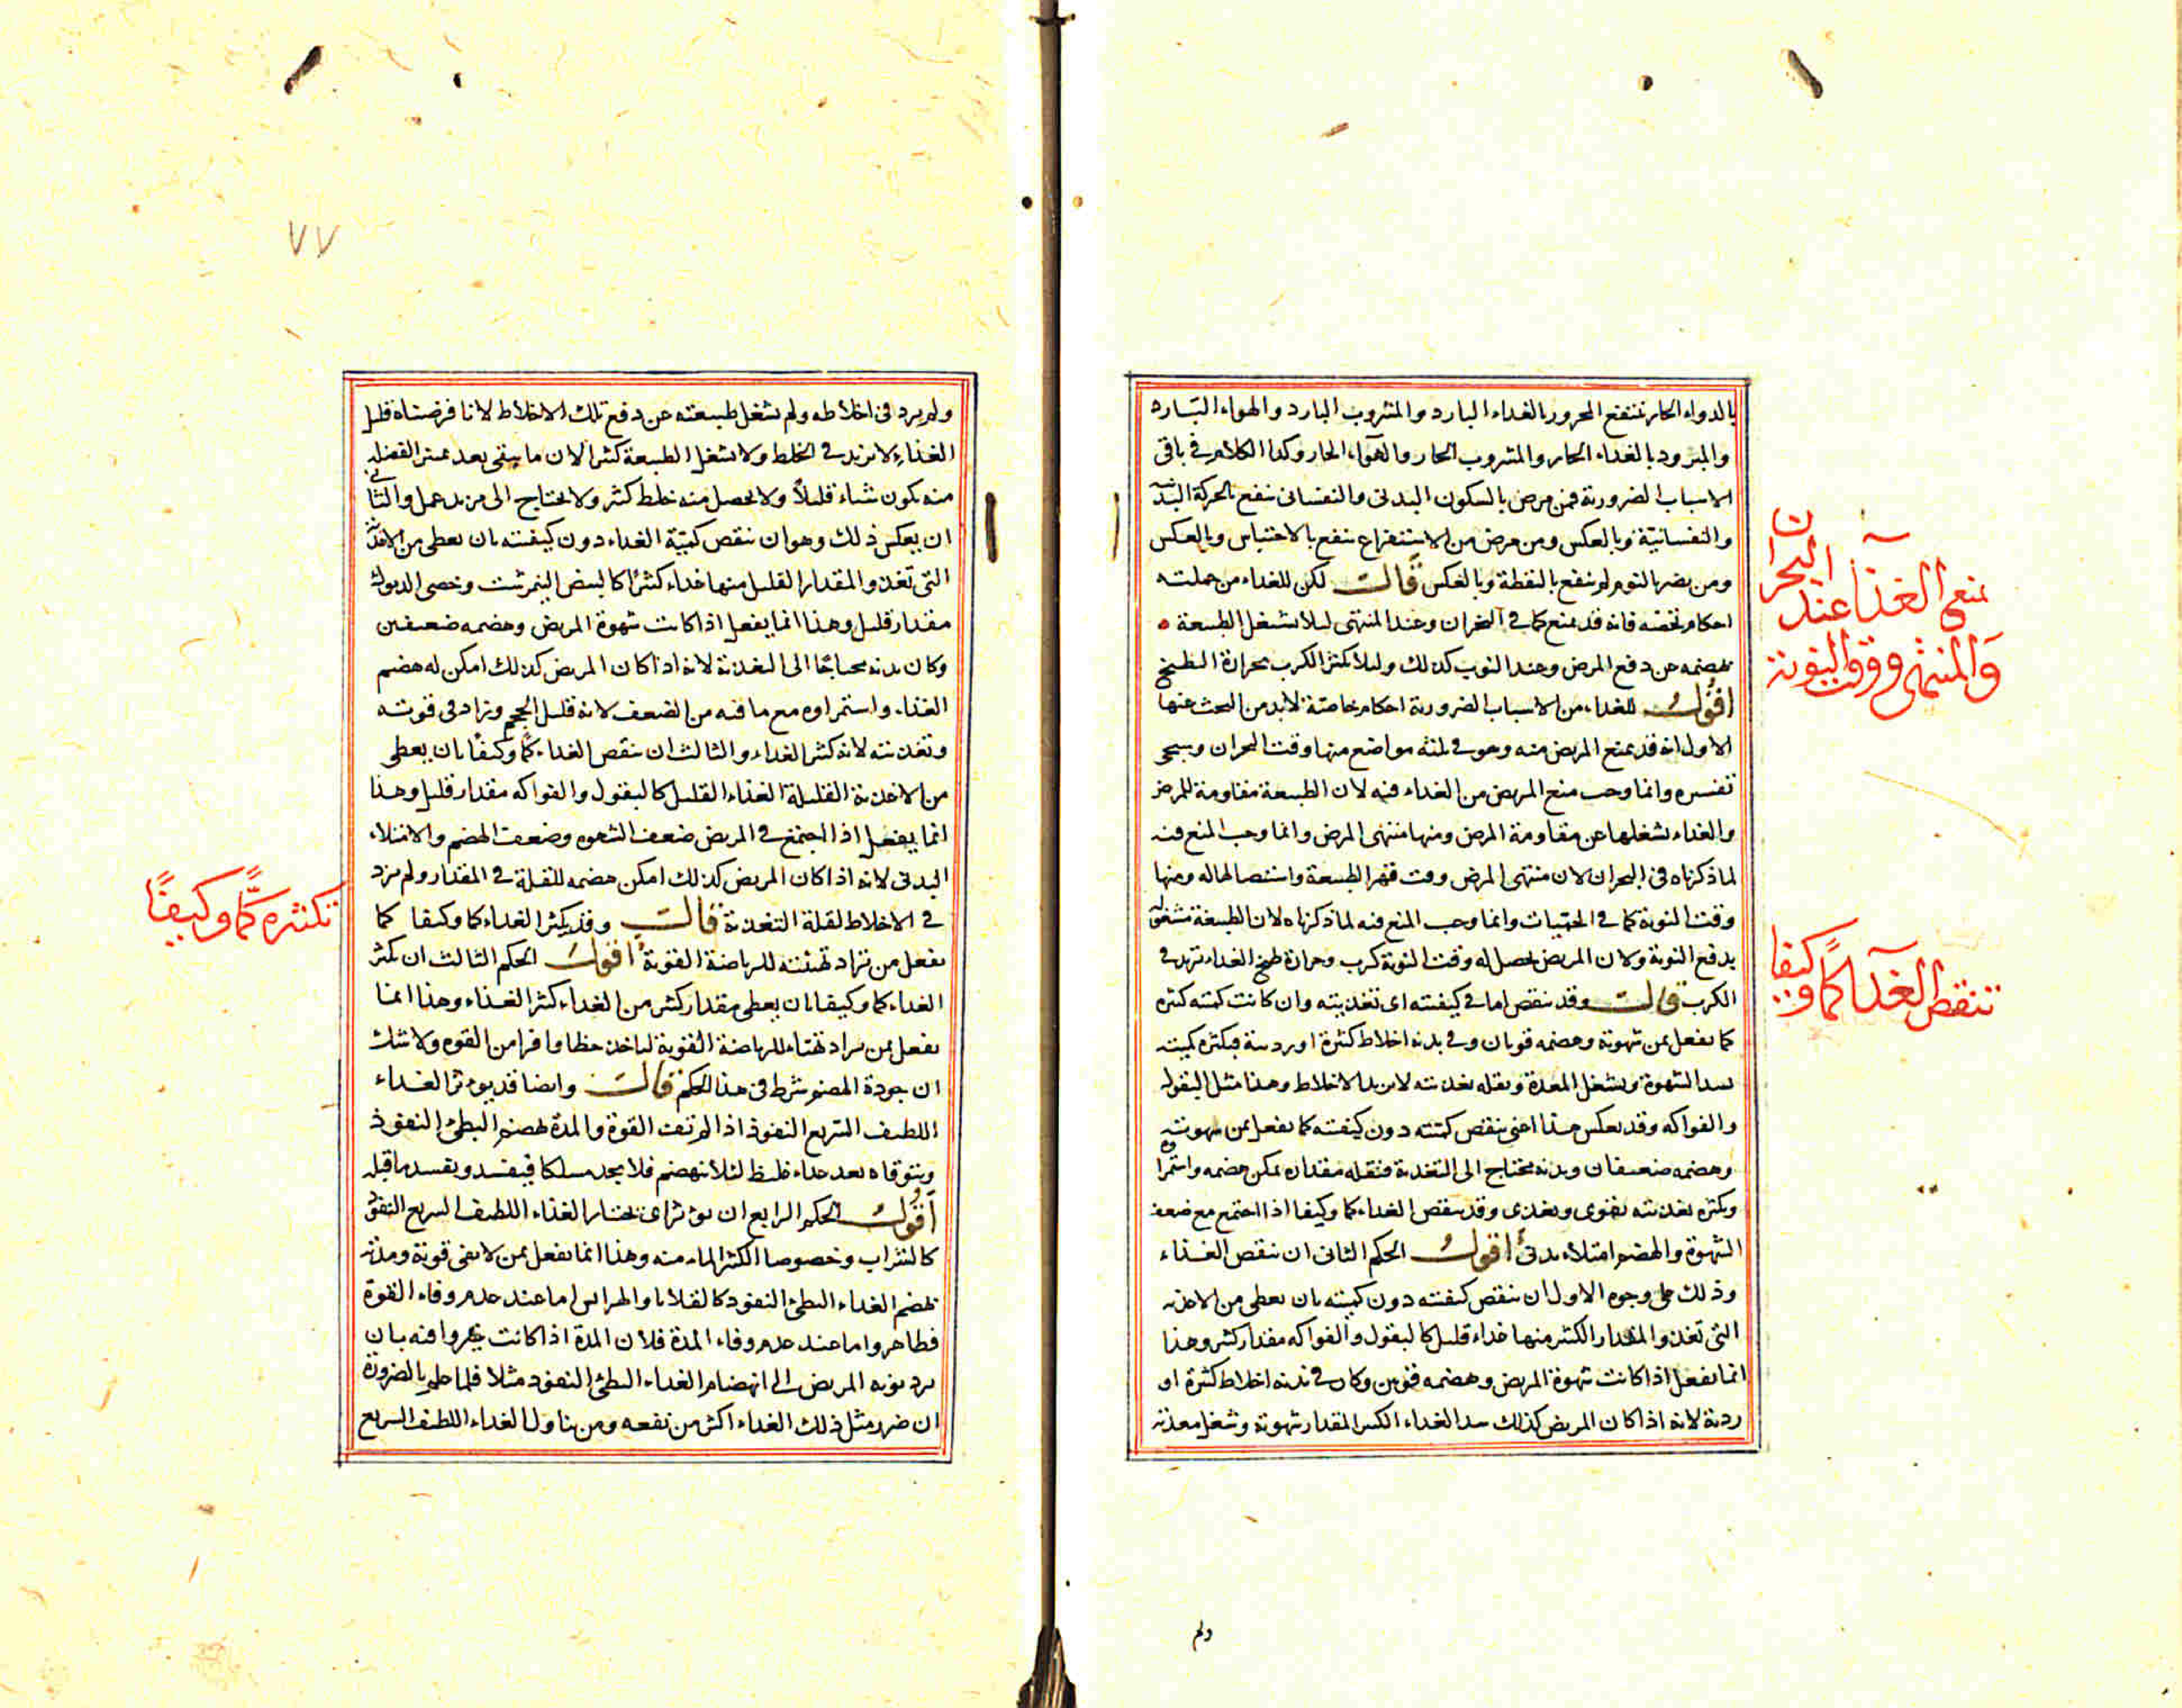 بالدواء الحار ينتفع المحرور بالغذاء البارد والمشروب البارد والهواء البارد
والمبرود بالغذاء الحار والمشروب الحار والهواء الحار وكذا الكلام في باقي
الاسباب الضرورية فمن مرض بالسكون البدني والنفساني ينفع بالحركة البدنية
والنفسانية وبالعكس ومن مرض من الاستفراغ ينفع بالاحتباس وبالعكس
ومن يضره النوم ينفع باليقظة وبالعكس قال لكن للغذاء من جملته
احكام تخصه فانه قد يمنع كما في البحران وعند المنتهى ليلا تشتغل الطبيعة
بهضمه عن دفع المرض وعند النوب كذلك وليلا يكثر الكرب بحرارة الطبخ
اقول للغذاء من الاسباب الضرورية احكام خاصة لا بد من البحث عنها
الاول انه قد يمنع المريض منه وهو في ثلثة مواضع منها وقت البحران وسيجى
تفسيره وانما وجب منع المريض من الغذاء فيه لان الطبيعة مقاومة للمرض
والغذاء يشغلها عن مقاومة المرض ومنها منتهى المرض وانما وجب المنع فيه
لما ذكرناه في البحران لان منتهى المرض وقت قهر الطبيعة واستيصالها له ومنها
وقت النوبة كما في الحميات وانما وجب المنع فيه لما ذكرناه لان الطبيعة مشغولة
بدفع النوبة ولان المريض يحصل له وقت النوبة كرب وحرارة طبخ الغذاء تزيد في
الكرب قال وقد ينقص اما في كيفيته اى تغذيته وان كانت كميته كثيرة
كما يفعل بمن شهوته وهضمه قويان وفي بدنه اخلاط كثيرة او ردية فبكثرة كميته
يسد الشهوة ويشغل المعدة وبقلة تغذيته لا يزيد الاخلاط وهذا مثل البقول
والفواكه وقد يعكس هذا اعنى ينقص كميته دون كيفيته كما يفعل بمن شهوته
وهضمه ضعيفان وبدنه يحتاج الى التغذية فبقلة مقداره يمكن هضمه واستمراوه
وبكثرة تغذيته يقوى ويغذى وقد ينقص الغذاء كما وكيفا اذا اجتمع مع ضعف
الشهوة والهضم امتلاء بدنى اقول الحكم الثانى ان ينقص الغذاء
وذلك على وجوه الاول ان ينقص كيفيته دون كميته بان يعطى من الاغذية
التى تغذو المقدار الكثير منها غذاء قليل كالبقول والفواكه مقدار كثير وهذا
انما يفعل اذا كانت شهوة المريض وهضمه قويين وكان في بدنه اخلاط كثيرة او
ردية لانه اذا كان المريض كذلك سد الغذاء الكثير المقدار شهوته وشغل معدته
ولم
يمنع الغذآ عند البحران
والمنتهى ووقت النوبة
تنقص الغذآ كمًّا وكيفا
٧٧
ولم يزد في اخلاطه ولم يشغل طبيعته عن دفع تلك الاخلاط لانا فرضناه قليل
الغذاء لا يزيد في الخلط ولا يشغل الطبيعة كثيرا لان ما يبقى بعد تميز الفضلة
منه يكون شياء قليلًا ولا يحصل منه خلط كثير ولا يحتاج الى مزيد عمل والثانى
ان يعكس ذلك وهو ان ينقص كمية الغذاء دون كيفيته بان يعطى من الاغذية
التى تغذو المقدار القليل منها غذاء كثيرًا كالبيض النيمرشت وخصى الديوك
مقدار قليل وهذا انما يفعل اذا كانت شهوة المريض وهضمه ضعيفين
وكان بدنه محتاجًا الى التغذية لانه اذا كان المريض كذلك امكن له هضم
الغذاء واستمراوه مع ما فيه من الضعف لانه قليل الحجم ويزاد في قوته
وتغذيته لانه كثير الغذاء والثالث ان ينقص الغذاء كمًّا وكيفًا بان يعطى
من الاغذية القليلة الغذاء القليل كالبقول والفواكه مقدار قليل وهذا
انما يفعل اذا اجتمع في المريض ضعف الشهوه وضعف الهضم والامتلاء
البدنى لانه اذا كان المريض كذلك امكن هضمه للقلة في المقدار ولم يزد
في الاخلاط لقلة التغذية قال وقد يكثر الغذاء كما وكيفا كما
يفعل من يراد تهيئته للرياضة القوية اقول الحكم الثالث ان يكثر
الغذاء كما وكيفا بان يعطى مقدار كثير من الغذاء كثير الغذاء وهذا انما
يفعل بمن يراد تهياه للرياضة القوية لياخذ حظا وافرا من القوه ولا شك
ان جودة الهضم شرط في هذا الحكم قال وايضا قد يوثر الغذاء
اللطيف السريع النفوذ اذا لم تف القوة والمدة لهضم البطئ النفوذ
ويتوقاه بعد غذاء غليظ لئلا ينهضم فلا يجد مسلكا فيفسد ويفسد ما قبله
اقول الحكم الرابع ان يوثر اى يختار الغذاء اللطيف السريع النفوذ
كالشراب وخصوصا الكثير الماء منه وهذا انما يفعل بمن لا يفى قوته ومدته
بهضم الغذاء البطئ النفوذ كالقلايا والهرايس اما عند عدم وفاء القوة
فظاهر واما عند عدم وفاء المدة فلان المدة اذا كانت غير وافيه بان
يرد نوبه المريض الى انهضام الغذاء البطئ النفوذ مثلا فلما علم بالضرورة
ان ضرر مثل ذلك الغذاء اكثر من نفعه ومن يناول الغذاء اللطيف السريع
تكثره كمًّا وكيفًا